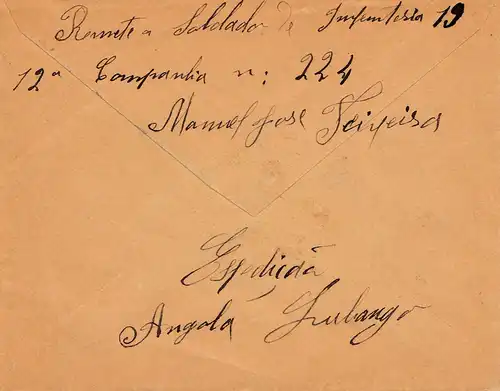 Remete a Soldado de Infenteria 19
12ª Companhia n: 224
Manuel José Teixeira
Espedição
Angola Lubango